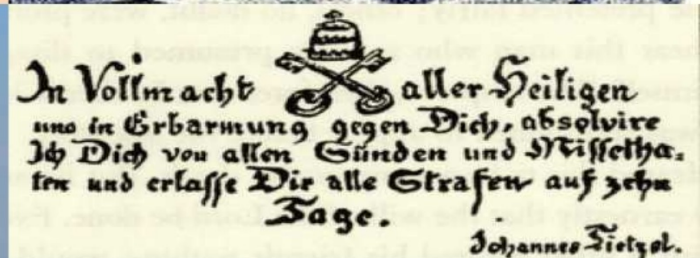 In Vollmacht aller Heiligen
und in Erbarmung gegen Dich, absolvire
Ich Dich von allen Sünden und Missetha=
ten und erlasse Dir alle Strafen auf zehn
Tage.
Johannes Tietzel.